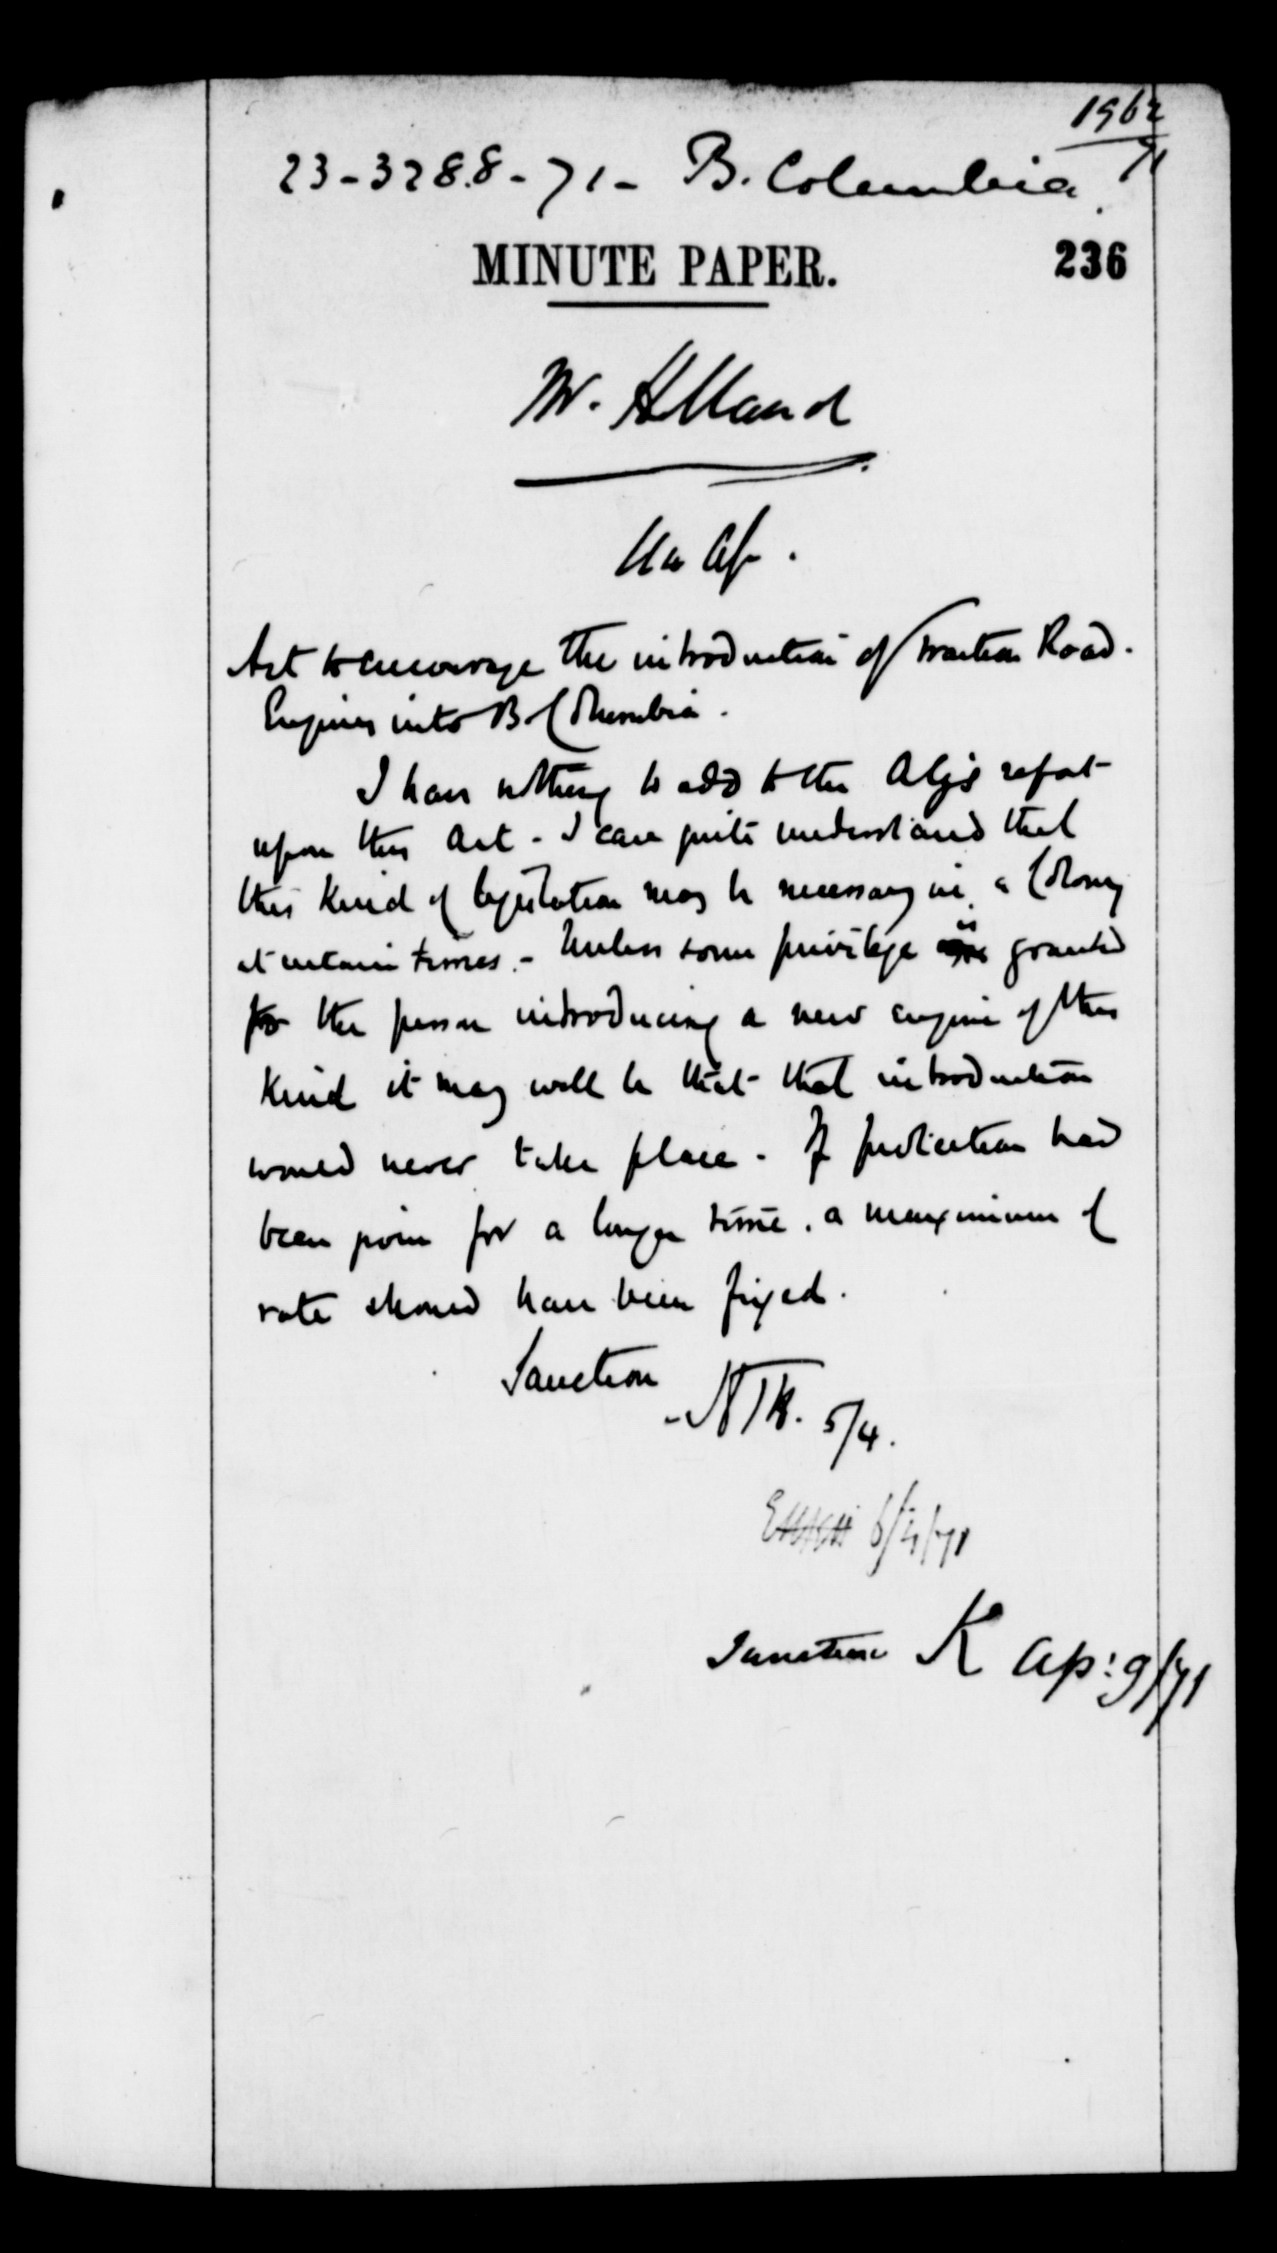 1962
71
23-3288-71- B. Columbia.
MINUTE PAPER.
236
Mr. Holland
Act to encourage the introduction of Traction Road
Engines into B. Columbia.
I have nothing to add to the AG's report
upon this Act - I can quite understand that
this kind of legislation may be necessary in a Colony
at certain times. - Unless some privilege is granted
for the person introducing a new engine of this
kind it may well be that that introduction
would never take place. If protection had
been given for a longer time, a maximum of
rate should have been fixed.
Sanction
5/4.
6/4/71
Sanction K Ap: 9/71